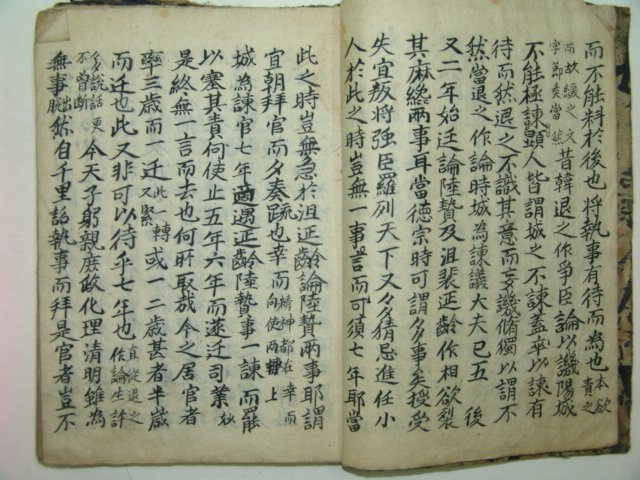 而不能料於後也將執事有待而為也本欲責之
而故緩之文字節奏當然昔韓退之作爭臣論以譏陽城
不能極諫顯人皆謂城之不諫盖卒以諫有
待而然退之不識其意而妄譏脩獨以謂不
然當退之作論時城為諫議大夫已五後
又二年始廷論陸贄及沮裴延齡作相欲裂
其麻終兩事耳當德宗時可謂多事矣授受
失宜叛將强臣羅列天下又多猜忌進任小
人於此之時豈無一事言而可須七年耶當
此之時豈無急於沮延齡論陸贄兩事耶謂
宜朝拜官而夕奏疏也幸而精神都在幸而向使兩轉上
城為諫官七年適遇延齡陸贄事一諫而罷
以塞其責何使止五年六年而遂迁司業妙
是終無一言而去也何所取哉今之居官者
率三歲而一迁又緊此一轉或一二歲甚者半歲
而迁也此又非可以待乎七年也直從退之作論生許
多說話更不曾斷今天子躬親庶政化理清明雖為
無事然自千里詔執事而拜是官者豈不